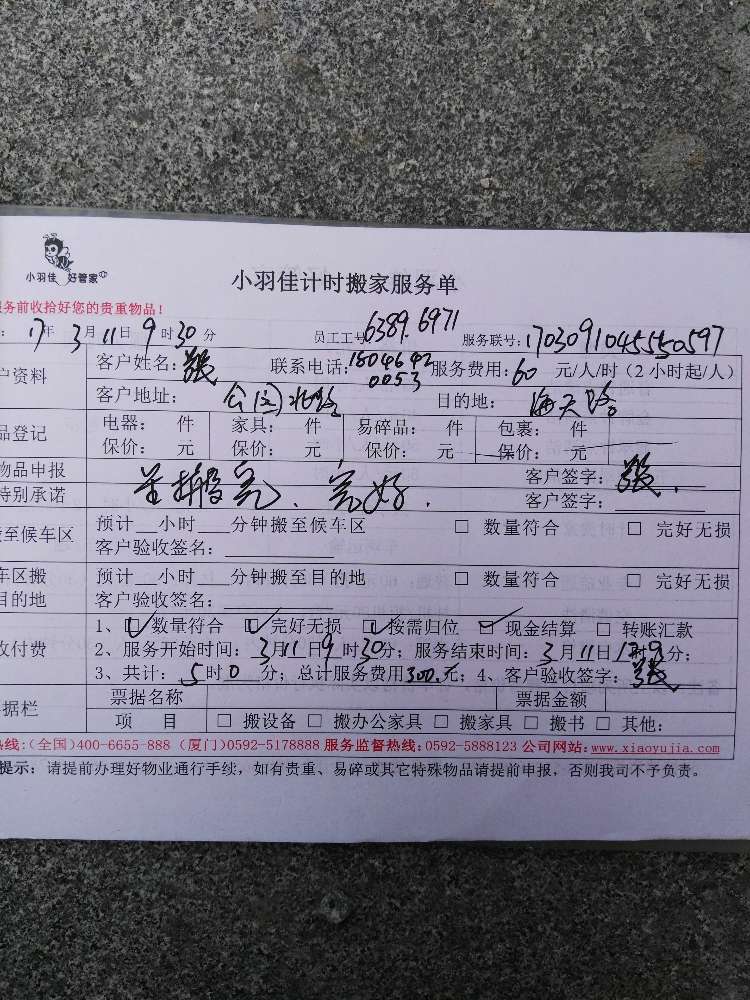 小羽佳 好管家
小羽佳计时搬家服务单
务前收拾好您的贵重物品！
：17年3月11日9时30分 员工工号6389.6971 服务联号：1703091045550597
户资料 客户姓名：张 联系电话：18046420053 服务费用：60元/人/时（2小时起/人）
客户地址：公园北路 目的地：海天路
品登记 电器： 件 家具： 件 易碎品： 件 包裹： 件
保价： 元 保价： 元 保价： 元 保价： 元
物品申报 客户签字：张
特别承诺 搬完、完好. 客户签字：
至候车区 预计 小时 分钟搬至候车区 □ 数量符合 □ 完好无损
客户验收签名：
车区搬 预计 小时 分钟搬至目的地 □ 数量符合 □ 完好无损
目的地 客户验收签名：
1、☑数量符合 ☑完好无损 ☑按需归位 ☑现金结算 □ 转账汇款
收付费 2、服务开始时间：3月11日9时30分；服务结束时间：3月11日 时 分；
3、共计：5时0分；总计服务费用300.元；4、客户验收签字：张
据栏 票据名称 票据金额
项 目 □ 搬设备 □ 搬办公家具 □ 搬家具 □ 搬书 □ 其他：
热线：（全国）400-6655-888（厦门）0592-5178888 服务监督热线：0592-5888123 公司网站：www.xiaoyujia.com
提示：请提前办理好物业通行手续，如有贵重、易碎或其它特殊物品请提前申报，否则我司不予负责。